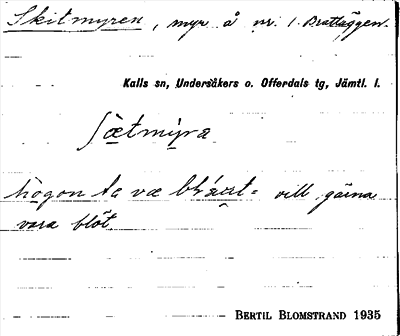 Skitmyren, myr å nr. 1 Brattäggen.
Kalls sn, Undersåkers o. Offerdals tg, Jämtl. l.
vill gärna
vara blöt
BERTIL BLOMSTRAND 1935